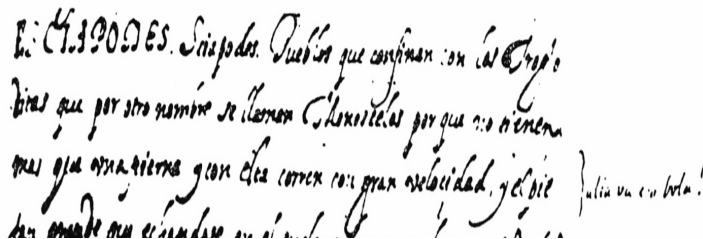 ESCIAPODES. Sciapodes. Pueblos que confinan con los Trogo
ditas que por otro nombre se llaman Monoscelos por que no tienen
mas que una pierna y con ella corren con gran velocidad, y el pie
tan grande que echandose en el